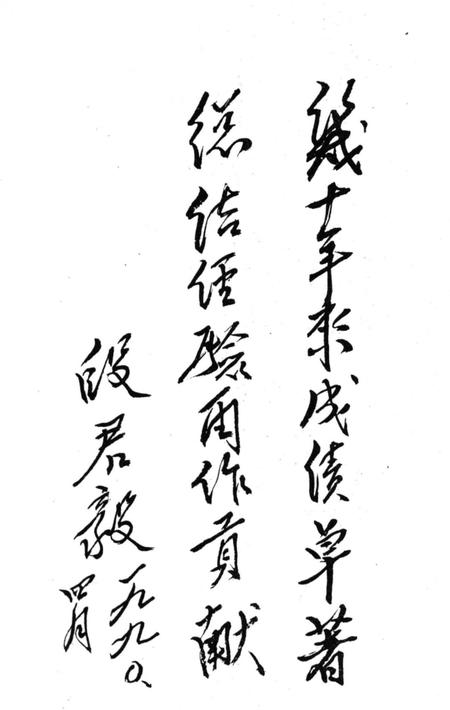 幾十年来成績卓著
總結經驗再作貢献
段君毅
一九九〇、
四月